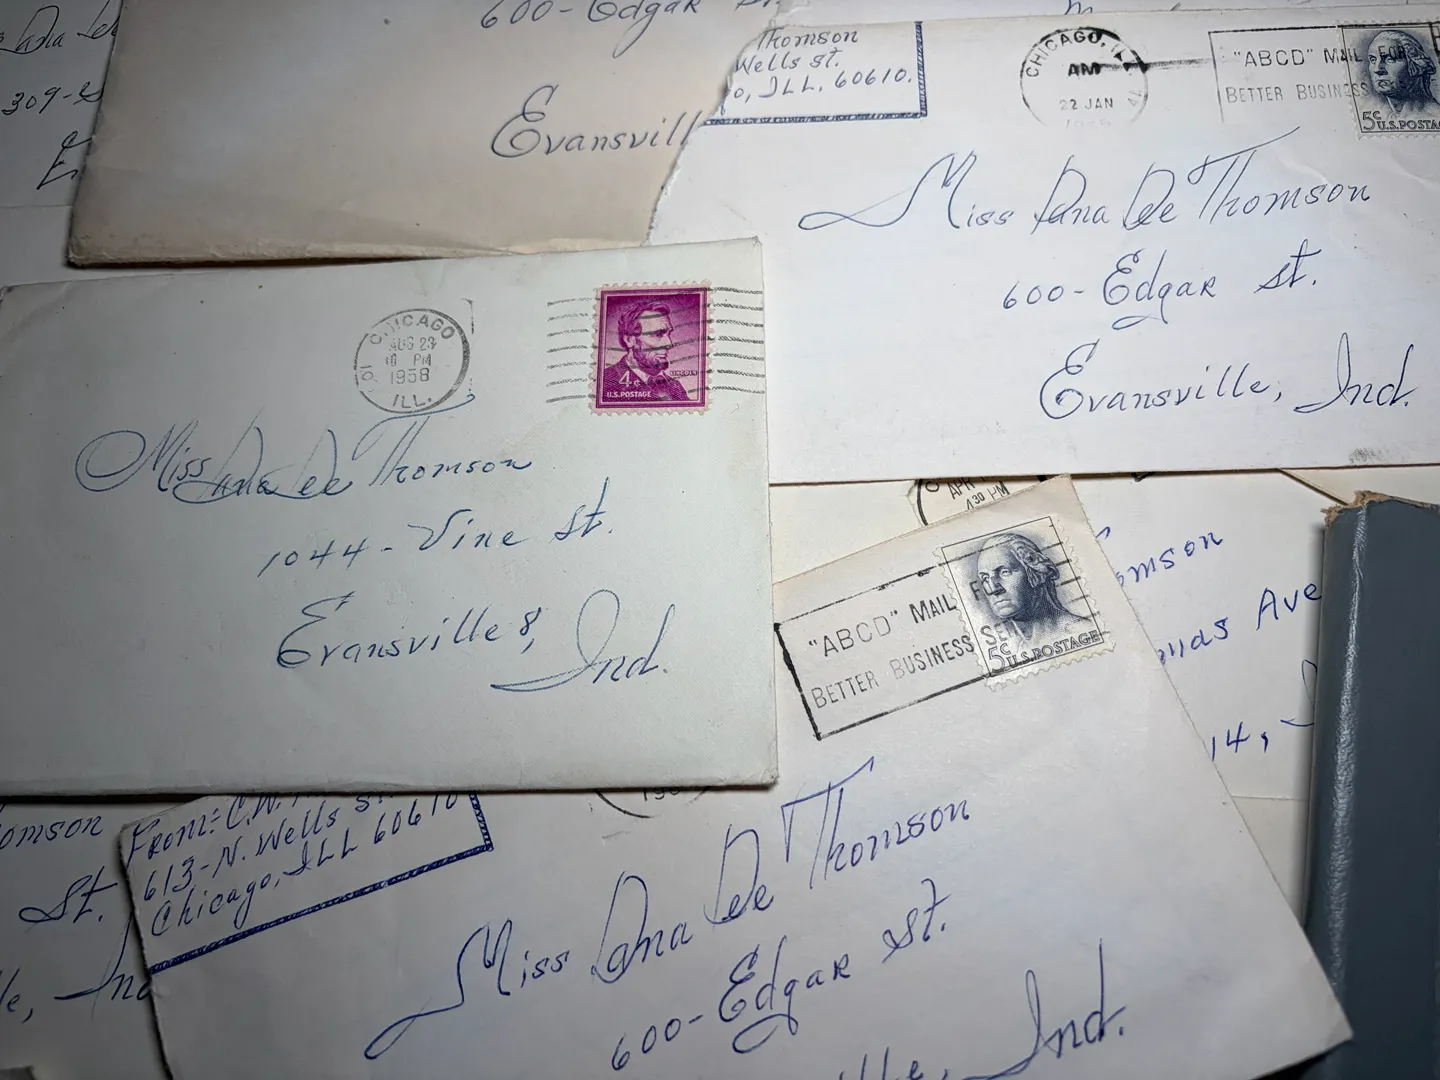 600- Edgar
Evansvill
309-
Thomson
Wells St.
o, ILL. 60610.
CHICAGO, IL
AM
22 JAN
"ABCD" MAIL FOR
BETTER BUSINESS
5¢ U.S. POSTA
Miss Dana Dee Thomson
600- Edgar St.
Evansville, Ind.
CHICAGO
AUG 23
PM
1958
ILL.
LINCOLN
4¢
U.S. POSTAGE
Miss Dana Dee Thomson
1044- Vine St.
Evansville 8,
Ind.
APR
430 PM
omson
Ave
14,
"ABCD" MAIL FO
BETTER BUSINESS
5¢ U.S. POSTAGE
omson
St.
le, Ind
From: C.W.
613-N. Wells St
Chicago, ILL 60610
Miss Dana Dee Thomson
600- Edgar St.
ville, Ind.